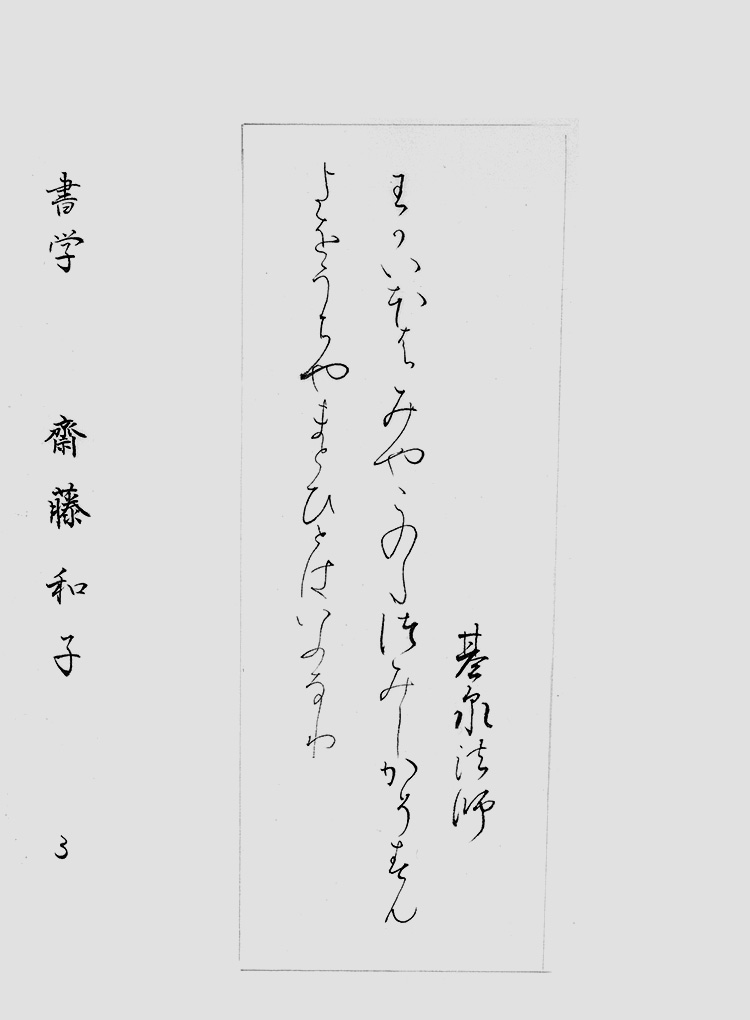 基泉法師
わかいほはみやこのたつみしかそすむ
よをうちやまとひとはいふなり
書学 齋藤和子 3